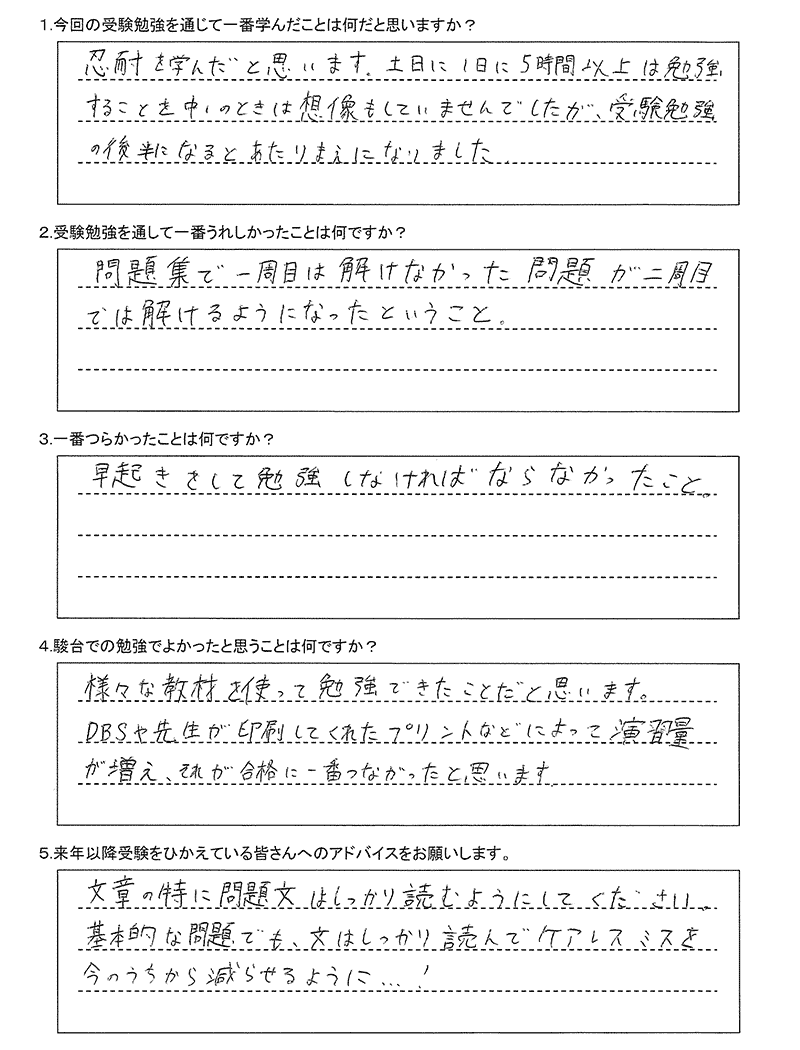 1.今回の受験勉強を通じて一番学んだことは何だと思いますか？
忍耐を学んだと思います。土日に1日に5時間以上は勉強
することを中1のときは想像もしていませんでしたが、受験勉強
の後半になるとあたりまえになりました
2.受験勉強を通して一番うれしかったことは何ですか？
問題集で一周目は解けなかった問題が二周目
では解けるようになったということ。
3.一番つらかったことは何ですか？
早起きをして勉強しなければならなかったこと。
4.駿台での勉強でよかったと思うことは何ですか？
様々な教材を使って勉強できたことだと思います。
DBSや先生が印刷してくれたプリントなどによって演習量
が増え、それが合格に一番つながったと思います
5.来年以降受験をひかえている皆さんへのアドバイスをお願いします。
文章の特に問題文はしっかり読むようにしてください。
基本的な問題でも、文はしっかり読んでケアレスミスを
今のうちから減らせるように…！